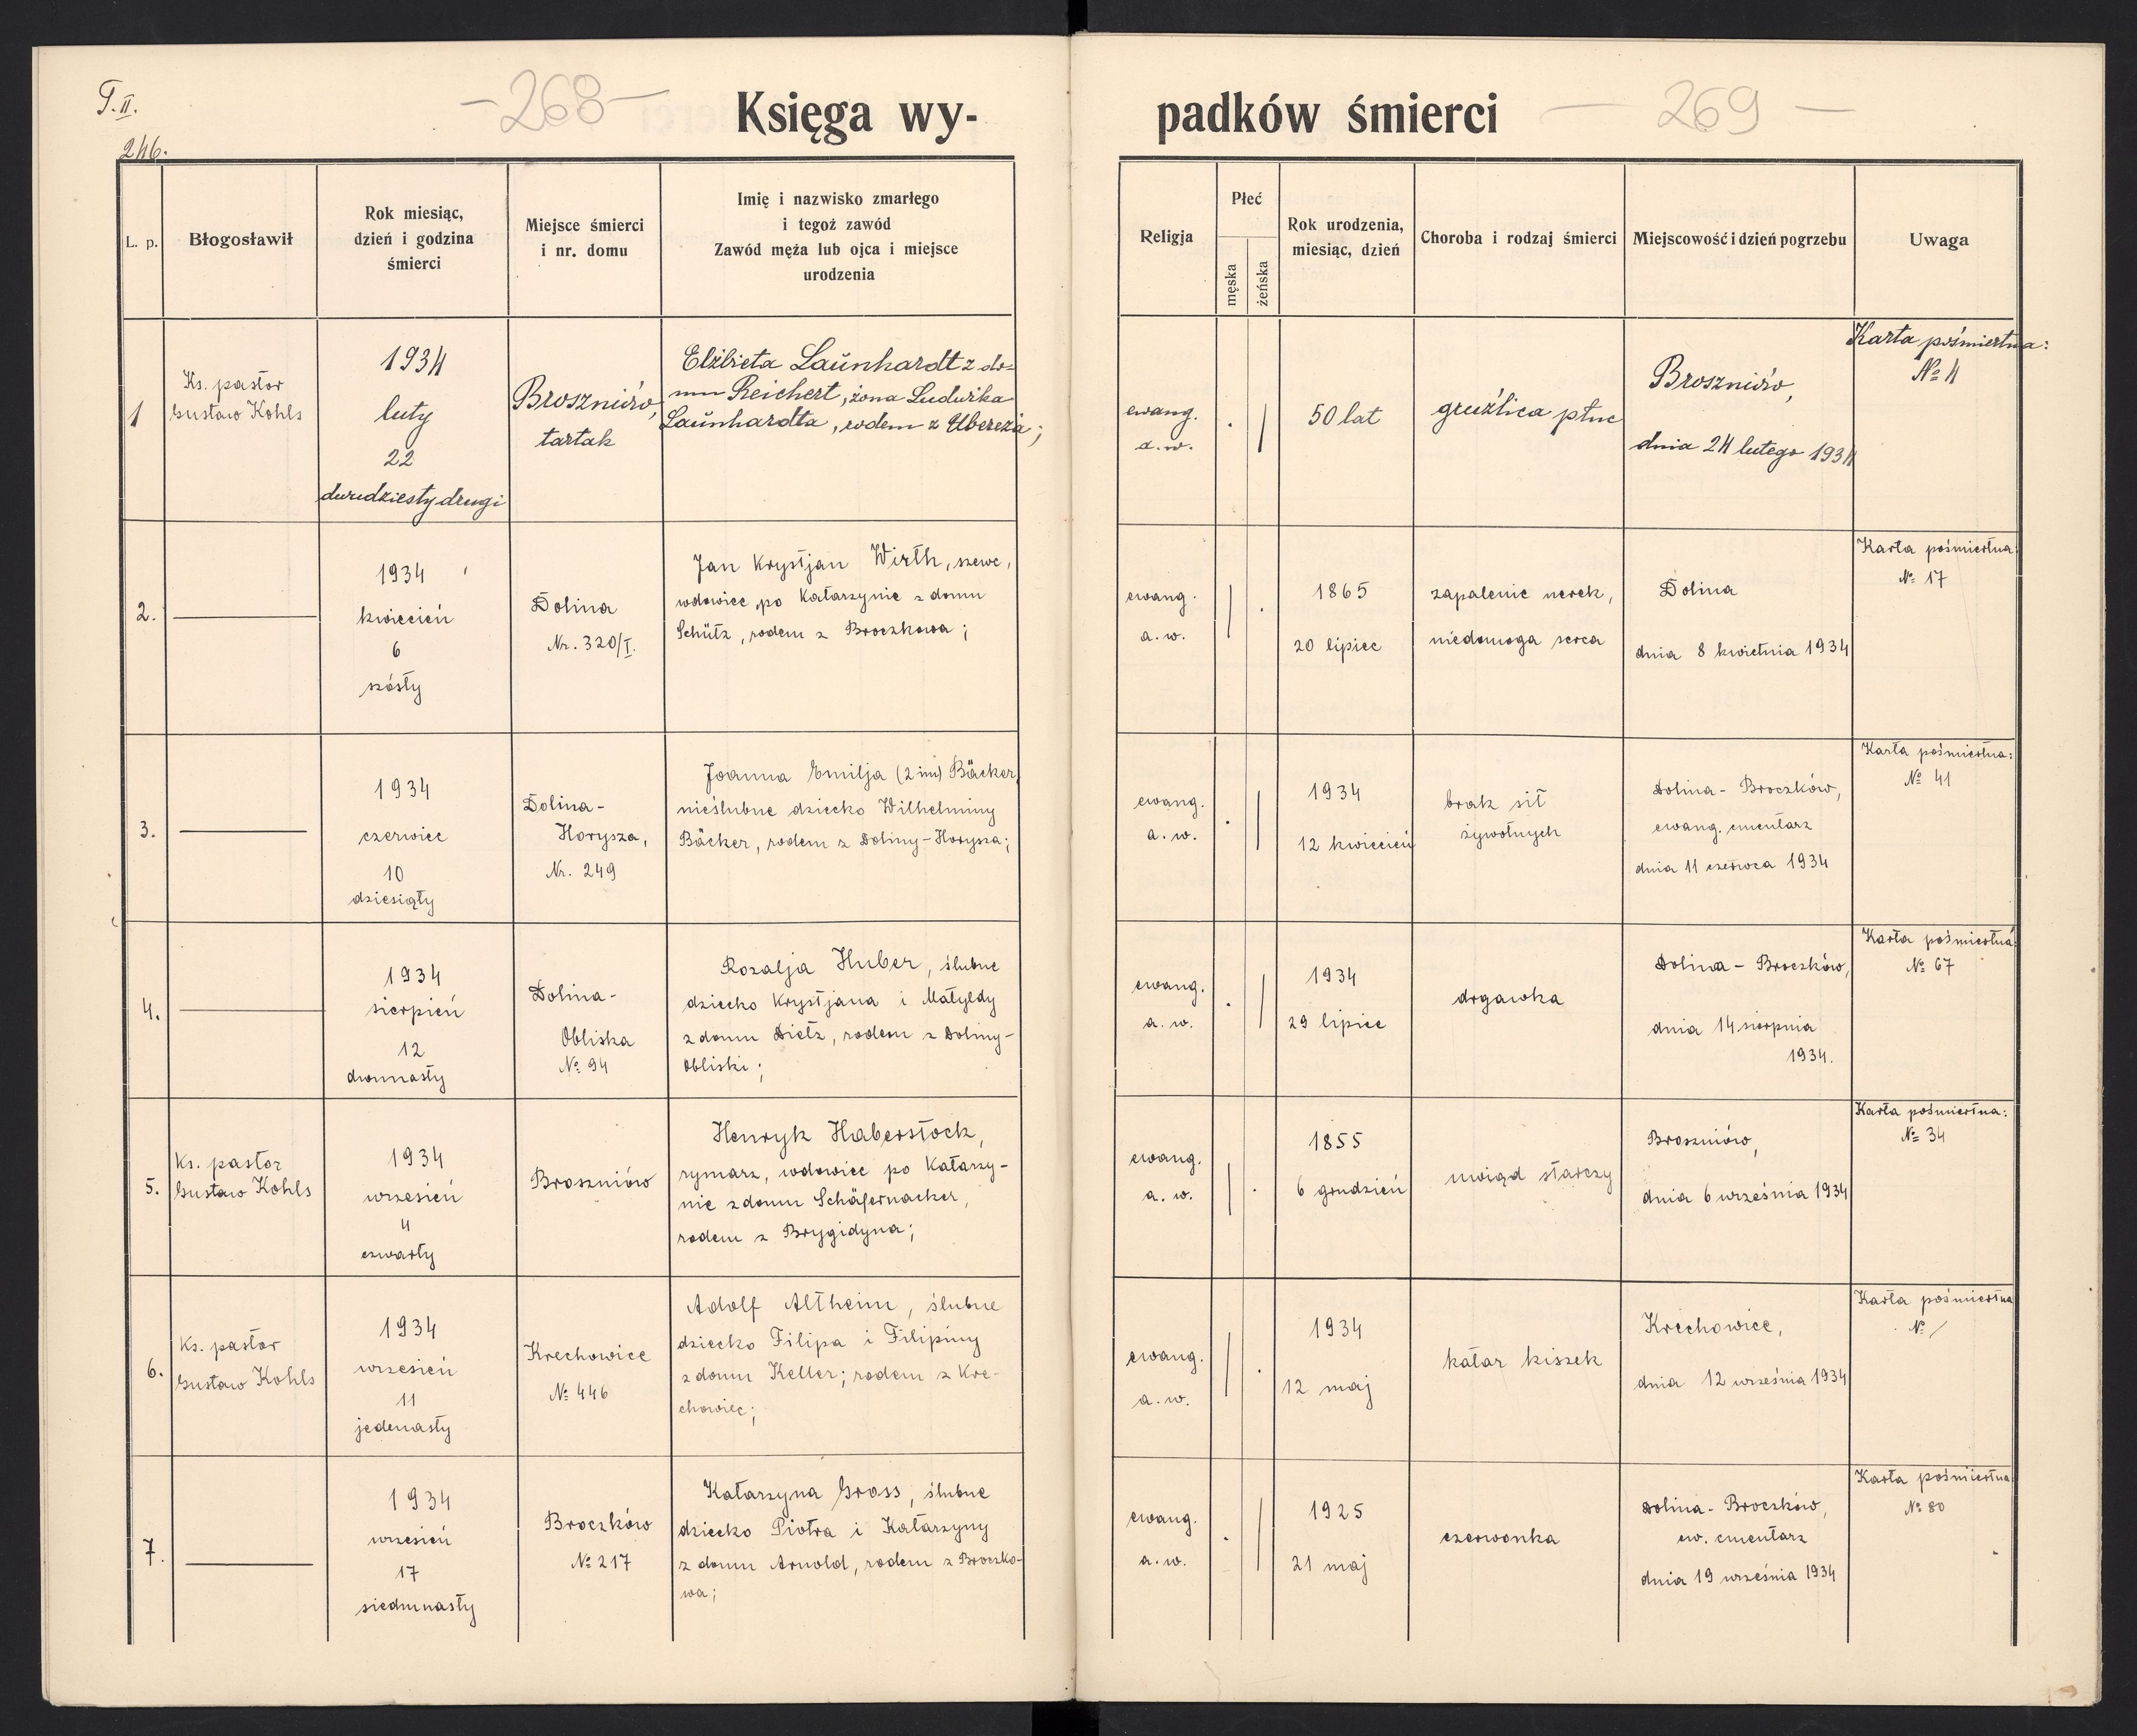 T. II.
246.
-268-
Księga wy-
padków śmierci
- 269 -
L. p.
Błogosławił
Rok miesiąc,
dzień i godzina
śmierci
Miejsce śmierci
i nr. domu
Imię i nazwisko zmarłego
i tegoż zawód
Zawód męża lub ojca i miejsce
urodzenia
Religja
Płeć
męska
żeńska
Rok urodzenia,
miesiąc, dzień
Choroba i rodzaj śmierci
Miejscowość i dzień pogrzebu
Uwaga
1
Ks. pastor
Gustaw Kohls
1934
luty
22
dwudziesty drugi
Broszniów,
tartak
Elżbieta Laŭnhardt z do-
mu Reichert, żona Ludwika
Laŭnhardta, rodem z Ubereża;
ewang.
a. w.
50 lat
gruźlica płuc
Broszniów,
dnia 24 lutego 1934
Karta pośmiertna:
№ 4
2.
1934
kwiecień
6
szósty
Dolina
Nr. 320/I.
Jan Krystjan Wirth, szewc,
wdowiec po Katarzynie z domu
Schütz, rodem z Broczkowa;
ewang.
a. w.
1865
20 lipiec
zapalenie nerek,
niedomoga serca
Dolina
dnia 8 kwietnia 1934
Karta pośmiertna:
№ 17
3.
1934
czerwiec
10
dziesiąty
Dolina-
Horysza,
Nr. 249
Joanna Emilja (2 im) Bäcker,
nieślubne dziecko Wilhelminy
Bäcker, rodem z Doliny-Horysza;
ewang.
a. w.
1934
12 kwiecień
brak sił
żywotnych
Dolina - Broczków,
ewang. cmentarz
dnia 11 czerwca 1934
Karta pośmiertna:
№ 41
4.
1934
sierpień
12
dwunasty
Dolina-
Obliska
№ 94
Rozalja Huber, ślubne
dziecko Krystjana i Matyldy
z domu Dietz, rodem z Doliny-
Obliski;
ewang.
a. w.
1934
29 lipiec
drgawka
Dolina - Broczków,
dnia 14 sierpnia
1934.
Karta pośmiertna:
№ 67
5.
Ks. pastor
Gustaw Kohls
1934
wrzesień
4
czwarty
Broszniów
Henryk Haberstock,
rymarz, wdowiec po Katarzy-
nie z domu Schäfernacker,
rodem z Brygidyna;
ewang.
a. w.
1855
6 grudzień
uwiąd starczy
Broszniów,
dnia 6 września 1934
Karta pośmiertna:
№ 34
6.
Ks. pastor
Gustaw Kohls
1934
wrzesień
11
jedenasty
Krechowice
№ 446
Adolf Altheim, ślubne
dziecko Filipa i Filipiny
z domu Keller; rodem z Kre-
chowiec;
ewang.
a. w.
1934
12 maj
katar kiszek
Krechowice,
dnia 12 września 1934
Karta pośmiertna
№ /
7.
1934
wrzesień
17
siedmnasty
Broczków
№ 217
Katarzyna Gross, ślubne
dziecko Piotra i Katarzyny
z domu Arnold, rodem z Broczko-
wa;
ewang.
a. w.
1925
21 maj
czerwonka
Dolina - Broczków,
ew. cmentarz
dnia 19 września 1934
Karta pośmiertna
№ 80